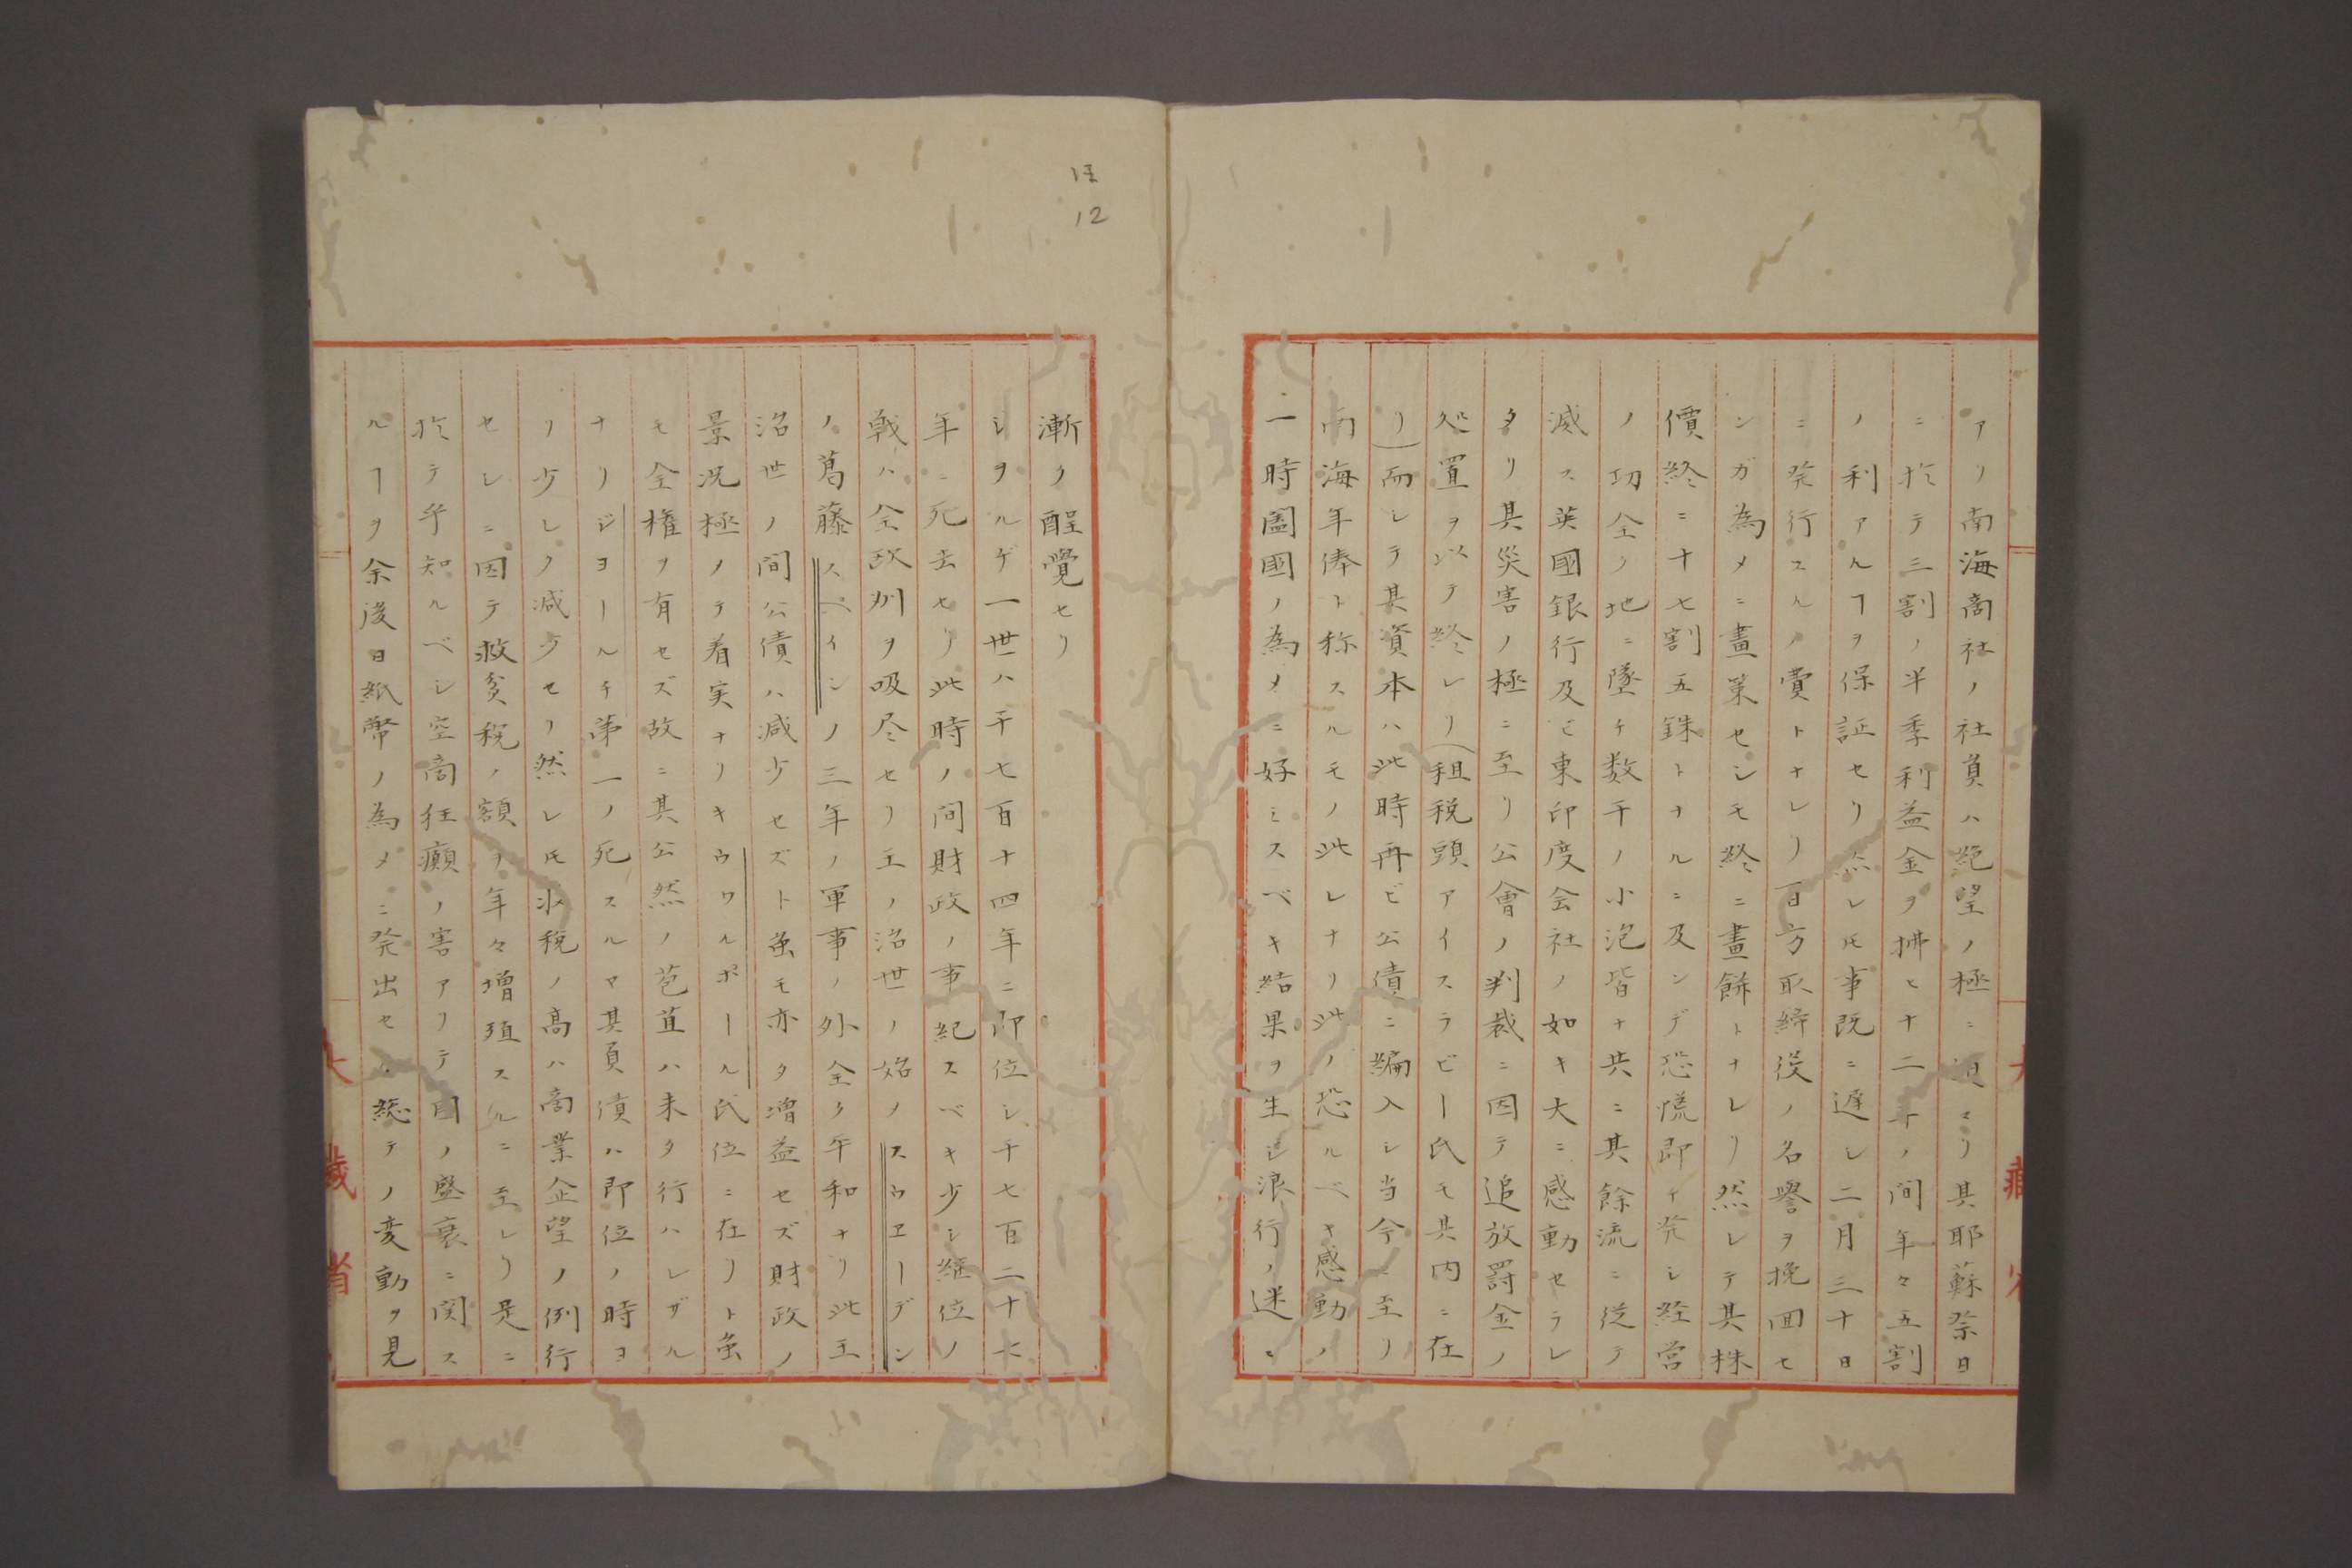 アリ南海商社ノ社員ハ絶望ノ極ニ迫マリ其耶蘇祭日
ニ於テ三割ノ半季利益金ヲ拂ヒ十二年ノ間年々五割
ノ利アルヿヲ保証セリ然レ𪜈事既ニ遅シ二月三十日
ニ発行スルノ費トナレリ百方取締役ノ名誉ヲ挽回セ
ンガ為メニ畫策セシモ終ニ畫餅トナレリ然レテ其株
價終ニ十七割五銖トナルニ及ンデ恐慌即チ発シ経営
ノ功全ク地ニ墜チ数千ノ小泡皆ナ共ニ其餘流ニ従テ
滅ス英國銀行及ビ東印度会社ノ如キ大ニ感動セラレ
タリ其災害ノ極ニ至リ公會ノ判裁ニ因テ追放罰金ノ
処置ヲ以テ終レリ(租税頭アイスラビー氏モ其内ニ在
リ)而シテ其資本ハ此時再ビ公債ニ編入シ当今ニ至リ
南海年俸ト称スルモノ此レナリ此ノ恐ルベキ感動ノ
一時闔國ノ為メニ好ミスベキ結果ヲ生ミ浪行ノ迷ミ
漸ク醒覺セリ
シヲルゲ一世ハ千七百十四年ニ即位シ千七百二十七
年ニ死去セリ此時ノ間財政ノ事紀スベキ少シ継位ノ
戦ハ全欧州ヲ吸尽セリ王ノ治世ノ始ノスウエーデン
ノ葛藤スペインノ三年ノ軍事ノ外全ク平和ナリ此王
治世ノ間公債ハ減少セズト虽モ亦タ増益セズ財政ノ
景况極メテ着実ナリキウワルポール氏位ニ在リト虽
モ全権ヲ有セズ故ニ其公然ノ苞苴ハ未タ行ハレザル
ナリジヨールヂ第一ノ死スルヤ其負債ハ即位ノ時ヨ
リ少シク減少セリ然レ𪜈収税ノ高ハ商業企望ノ例行
セシニ因テ救貧税ノ額ヲ年々増殖スルニ至レリ是ニ
於テ乎知ルベシ空商狂癲ノ害アリテ國ノ盛衰ニ関ス
ルヿヲ余後日紙幣ノ為メニ発出セル総テノ変動ヲ見
12
大藏省